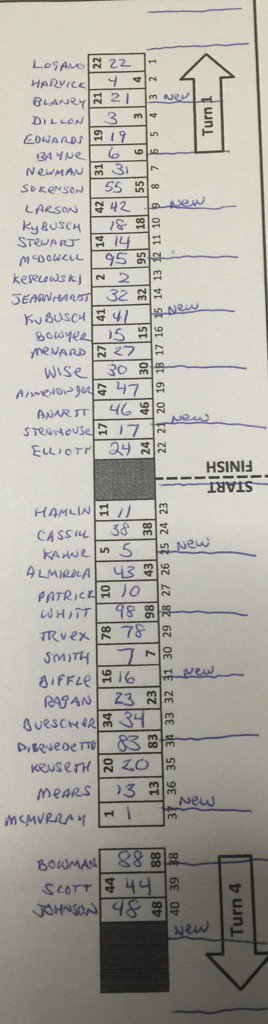 LOGANO 22 22 1
HARVICK 4 4 2
BLANEY 21 21 3 new
DILLON 3 3 4
EDWARDS 19 19 5
BAYNE 6 6 6
NEWMAN 31 31 7
SORENSON 55 55 8
LARSON 42 42 9 new
KyBUSCH 18 18 10
STEWART 14 14 11
MCDOWELL 95 95 12
KESELOWSKI 2 2 13
JEARNHARDT 32 32 14
KuBUSCH 41 41 15 new
BOWYER 15 15 16
MENARD 27 27 17
WISE 30 30 18
ALLMENDINGER 47 47 19
ANNETT 46 46 20
STENHOUSE 17 17 21 new
ELLIOTT 24 24 22
Turn 1
FINISH
START
HAMLIN 11 11 23
CASSILL 38 38 24
KAHNE 5 5 25 new
ALMIROLA 43 43 26
PATRICK 10 10 27
WHITT 98 98 28
TRUEX 78 78 29
SMITH 7 7 30
BIFFLE 16 16 31 new
RAGAN 23 23 32
BUESCHER 34 34 33
DIBENEDETTO 83 83 34
KENSETH 20 20 35
MEARS 13 13 36
MCMURRAY 1 1 37 new
BOWMAN 88 88 38
SCOTT 44 44 39
JOHNSON 48 48 40
new
Turn 4